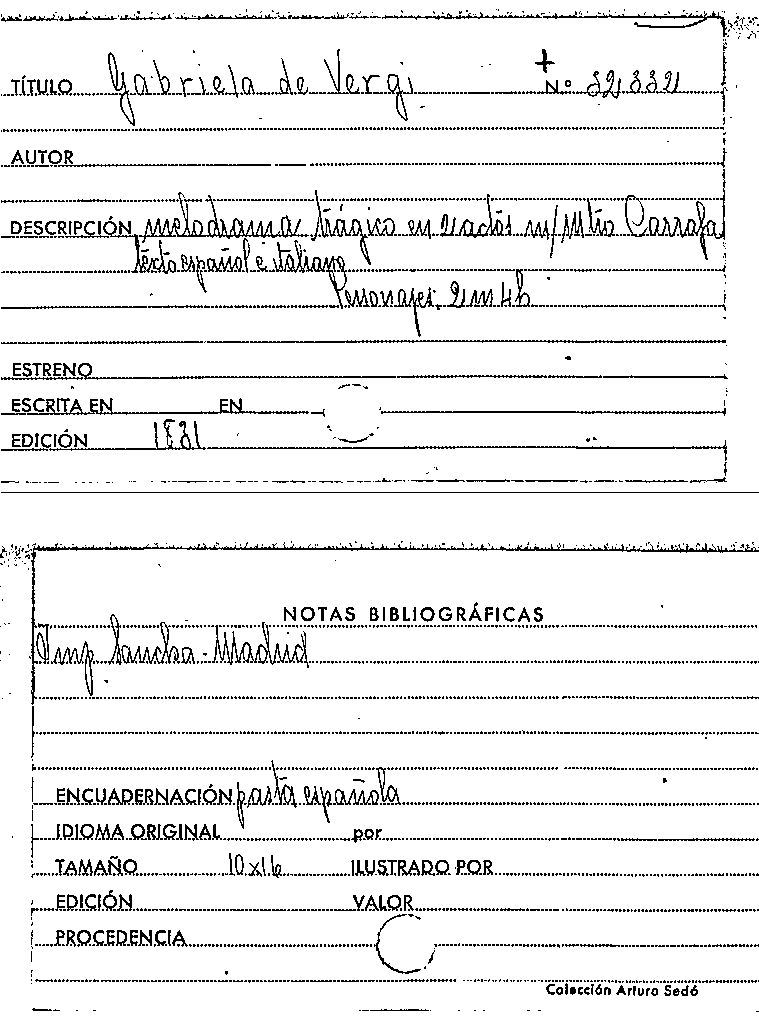 TÍTULO Gabriela de Vergi Nº
AUTOR
DESCRIPCIÓN melodrama trágico en 2 actos m/ Mtro Carrafa
texto español e italiano
Personajes. 2 m 4 h
ESTRENO
ESCRITA EN EN
EDICIÓN 1831
NOTAS BIBLIOGRÁFICAS
Imp. Sancha - Madrid
ENCUADERNACIÓN pasta española
IDIOMA ORIGINAL por
TAMAÑO 10x16 ILUSTRADO POR
EDICIÓN VALOR
PROCEDENCIA
Colección Arturo Sedó